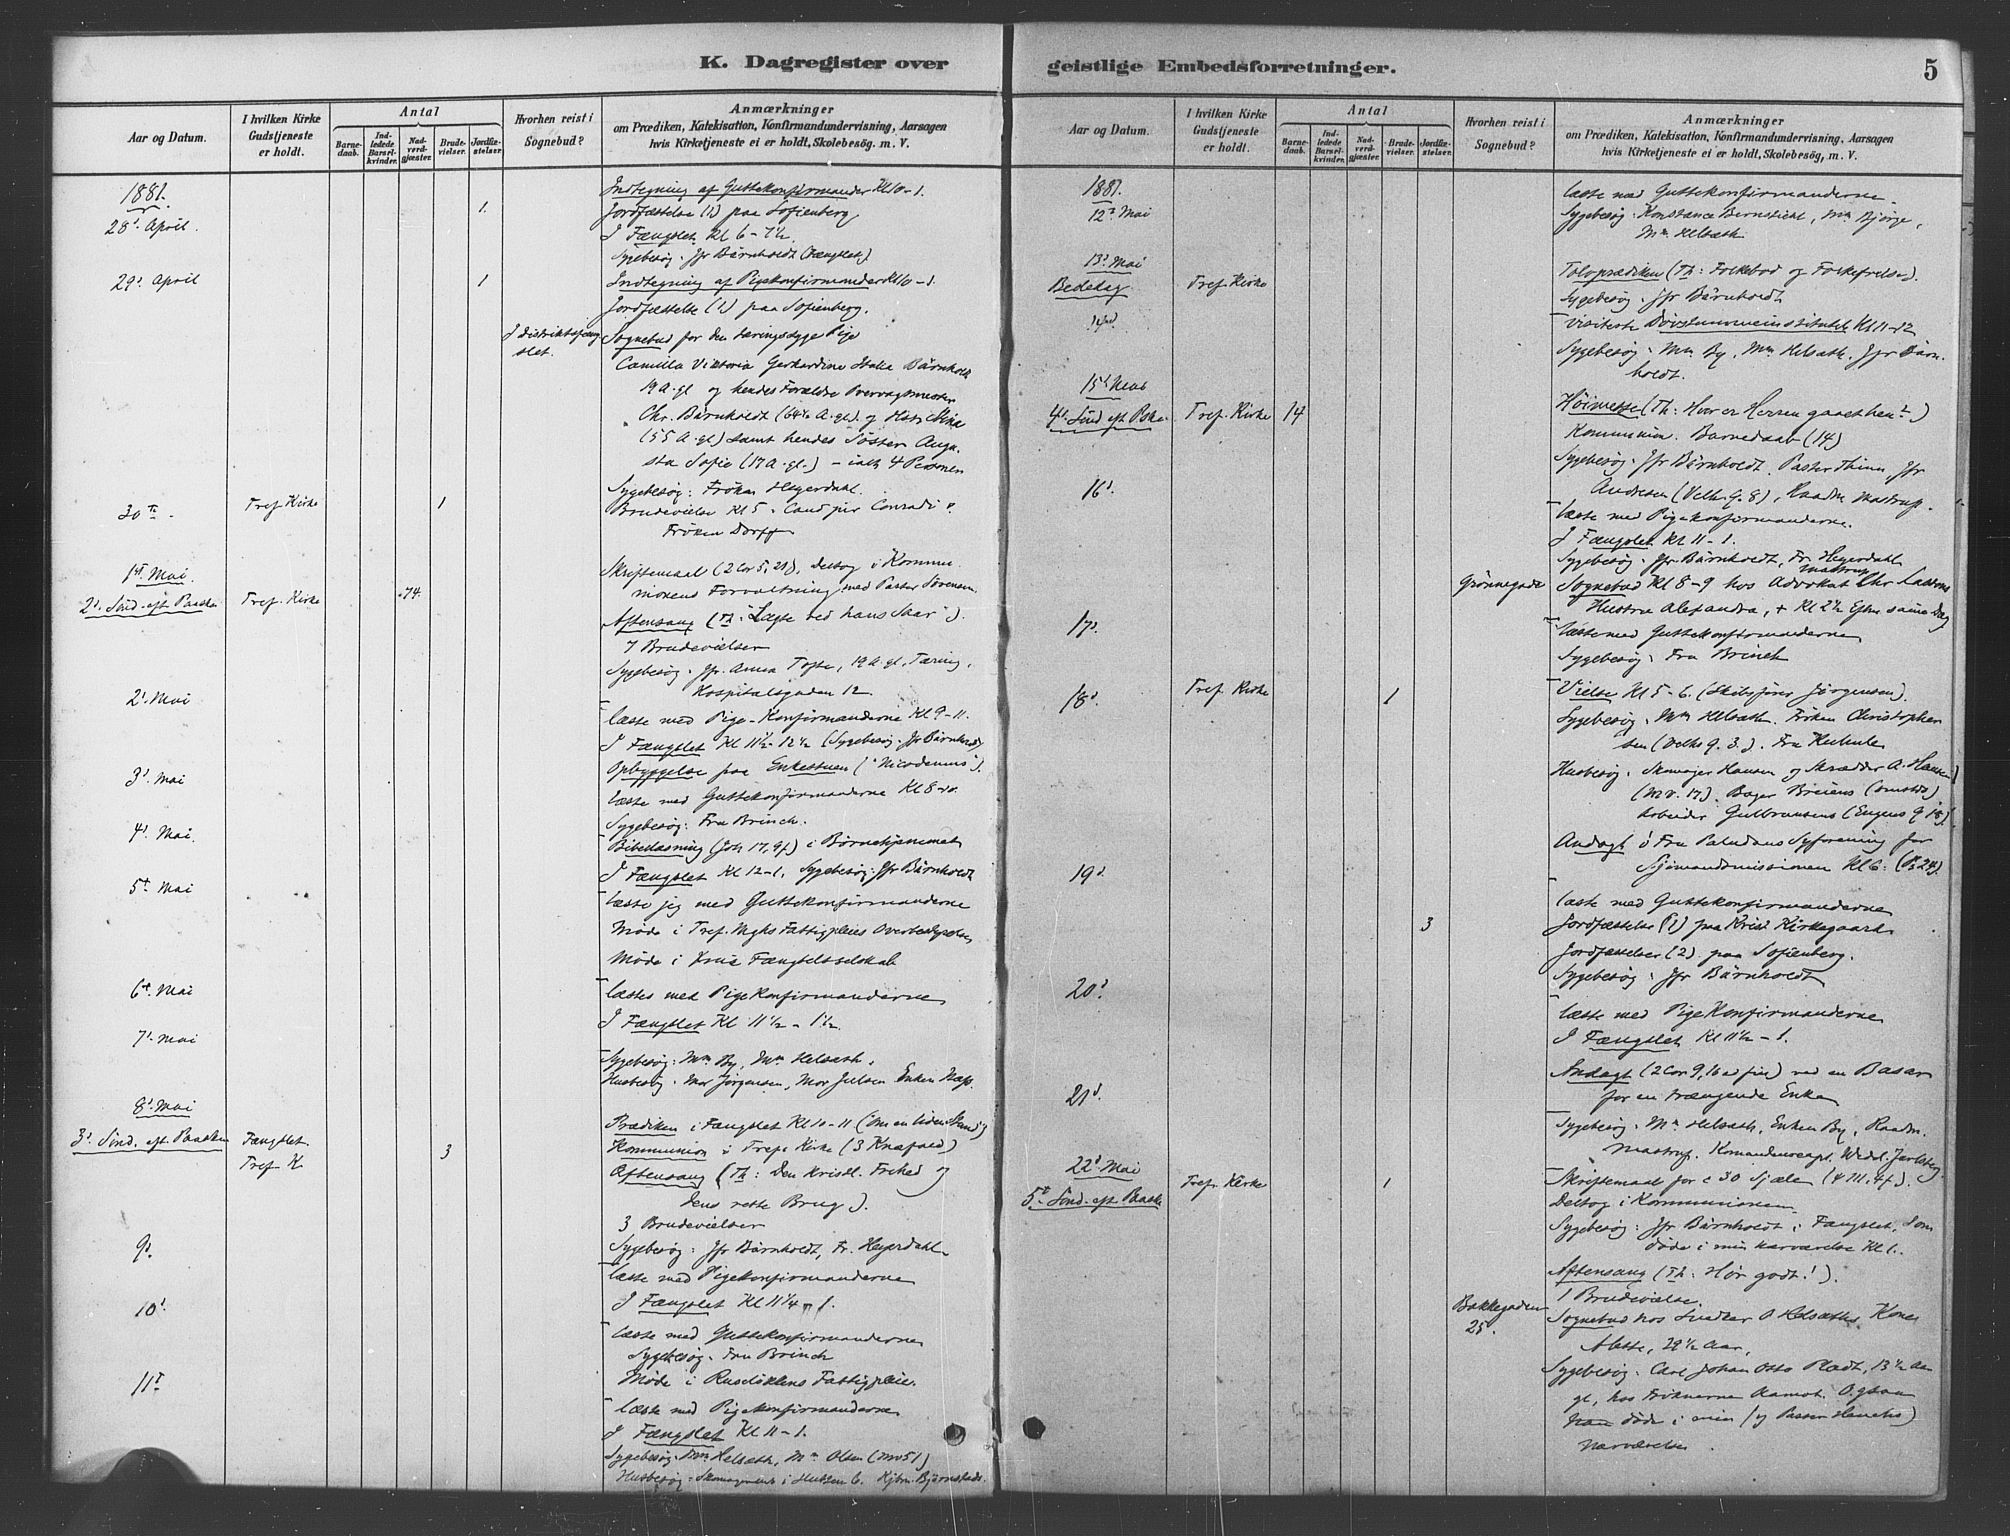 K. Dagregister over
Aar og Datum.
I hvilken Kirke Gudstjeneste er holdt.
Antal
Barnedaab.
Indledede Barselkvinder.
Nadverdgjæster.
Brudevielser.
Jordfæstelser.
Hvorhen reist i Sognebud?
Anmærkninger
om Prædiken, Katekisation, Konfirmandundervisning, Aarsagen
hvis Kirketjeneste ei er holdt, Skolebesøg. m. V.
1881.
28d April. 1. Indtegning af Guttekonfirmander Kl 10-1.
Jordfæstelse (1) paa Sofienberg
I Fængslet Kl 6-7½
Sygebesøg. Jfr Bärnholdt (Fængslet)
29d April 1 Indtegning af Pigekonfirmander Kl 10-1.
Jordfæstelse (1) paa Sofienberg.
I Distriktsfængslet. Sognebud for den tæringssyge Pige
Camilla Viktoria Gerhardine Bärnholdt
19 A. gl og hendes Forældre Overvagtmester
Chr. Bärnholdt (64½ A. gl.) og
(55 A. gl) samt hendes Søster Augusta Sofie (17 A. gl.) - ialt 4 Personer
Sygebesøg: Frøken Hegerdahl.
30te Tref. Kirke 1 Brudevielse Kl 5. Cand jur Conradi &
Frøken Dorff
1ste Mai.
2d Sönd. eft Paaske Tref. Kirke 74. Skriftemaal (2 Cor 5, 21), Deltog i Kommunionens Forvaltning med Pastor Sörensen
Aftensang (Th: "Lægte ved hans Saar").
7 Brudevielser
Sygebesøg. Jfr. Anna Tofte, 19 A. gl, Tæring,
Hospitalsgaden 12
2d Mai læste med Pige-Konfirmanderne Kl 9-11.
I Fængslet Kl 11½-12½ (Sygebesøg. Jfr Bärnholdt)
Opbyggelse paa Enkestuen ("Nicodemus").
3d Mai læste med Guttekonfirmanderne Kl 8-10.
Sygebesøg: Fru Brinch.
4d Mai Bibellæsning (Joh 17, 9f) i Børnehjemmet
I Fængslet Kl 12-1, Sygebesøg: Jfr Bärnholdt
5te Mai læste jeg med Guttekonfirmanderne
Møde i Tref. Mghs Fattigpleies Overbestyrelse
Møde i Fængselsselskab
6te Mai læstes med Pigekonfirmanderne
I Fængslet Kl 11½-1½.
7d Mai Sygebesøg: Mm By, Mm Helsæth.
Husbesøg. Mor Jørgensen, Mor Julsen Enken Næss
8d Mai
3d Sönd. eft Paaske Fængslet
Tref K 3 Prædiken i Fængslet Kl 10-11 (Om en liden Stund)
Kommunion i Tref. Kirke (3 Knæfald)
Aftensang (Th: Den Kristl. Frihed og
dens rette Brug).
3 Brudevielser
9d Sygebesøg: Jfr Bärnholdt, Fr. Hegerdahl
læste med Pigekonfirmanderne
I Fængslet Kl 11¼-1.
10d læste med Guttekonfirmanderne
Sygebesøg. Fru Brinch
Møde i Ruseløkkens Fattigpleie.
11te læste med Pigekonfirmanderne
I Fængslet Kl 11-1.
Sygebesøg. Mm Helsæth, Mm Olsen
Husbesøg. Skomager
geistlige Embedsforretninger.
5
Aar og Datum.
I hvilken Kirke Gudstjeneste er holdt.
Antal
Barnedaab.
Indledede Barselkvinder.
Nadverdgjæster.
Brudevielser.
Jordfæstelser.
Hvorhen reist i Sognebud?
Anmærkninger
om Prædiken, Katekisation, Konfirmandundervisning, Aarsagen
hvis Kirketjeneste ei er holdt, Skolebesøg, m. V.
1881.
12te Mai læste med Guttekonfirmanderne.
Sygebesøg. Konstance Bernstiehl, Mm Bjørge,
Mm Helsæth
13d Mai
Bededag Tref. Kirke Tolvprædiken (Th: Folkebod og Folkefrelse).
Sygebesøg. Jfr Bärnholdt
14de Visiterte Døvstummeinstitutet Kl 11-12
Sygebesøg. Mm By, Mm Helsæth. Jfr Bärnholdt.
15de Mai
4d Sönd eft Paaske Tref. Kirke 14 Høimesse (Th: Hvor er Herren gaaet hen?)
Kommunion. Barnedaab (14)
Sygebesøg. Jfr Bärnholdt. Pastor Thinn, Jfr
Andresen (Velh. g. 8), Raadm Mastrup.
16d. læste med Pigekonfirmanderne.
I Fængslet Kl 11-1.
Sygebesøg. Jfr Bärnholdt, Fr. Hegerdahl
Grönnegade Sognebud Kl 8-9 hos Advokat Chr Lassons
Hustru Alexandra, + Kl 2½ Efter samme Dag
17d. læste med Guttekonfirmanderne
Sygebesøg. Fru Brinch
18d Tref. Kirke 1 Vielse Kl 5-6. (Skibsfører Jørgensen).
Sygebesøg. Mm Helsæth. Frøken Christophersen (Velhs g. 3.). Fru
Husbesøg. Skomager Hansen og Skrædder A. Hansen
(No. 17). Bager Breiens
Arbeider Gulbransens (Engens g 18).
Andagt i Fru Paludans Syforening for
Sjømandsmissionen Kl 6. (Ps 24).
19d læste med Guttekonfirmanderne
3 Jordfæstelse (1) paa Krist Kirkegaard
Jordfæstelser (2) paa Sofienberg.
Sygebesøg. Jfr Bärnholdt
20d læste med Pigekonfirmanderne
I Fængslet Kl 11½-1.
Andagt (2 Cor 9, 10 ad fin) ved en Basar
for en trængende Enke
21d. Sygebesøg. Mm Helsæth, Enken By, Raadm.
Mastrup. Komandørcapt. Wedel Jarlsberg
22d Mai
5te Sönd. eft Paaske Tref. Kirke 1 Skriftemaal for c 30 Sjæle
Deltog i Kommunionen
Sygebesøg: Jfr Bärnholdt i Fængslet, som
døde i min Nærværelse Kl 1.
Aftensang (Th: Hør godt!).
1 Brudevielse
Bakkegaden 25. Sognebud hos Snedker O Helsæths Kone
Alette, 29½ Aar,
Sygebesøg. Carl Johan Otto Pladt, 13½ Aar
gl, hos Frøknerne Aamot. Ogsaa
han døde i min (og Pastor Heuchs)
Nærværelse.